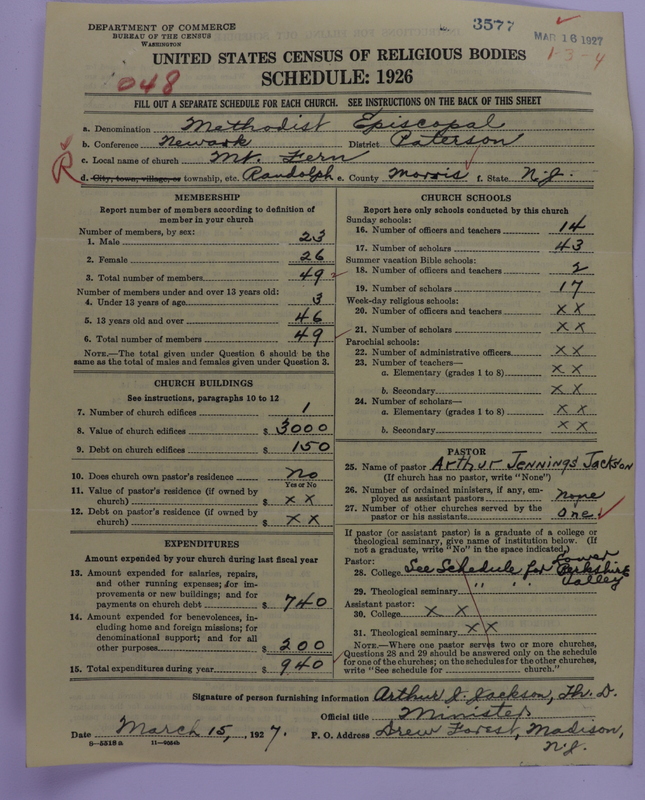 DEPARTMENT OF COMMERCE
BUREAU OF THE CENSUS
WASHINGTON
3577
MAR 16 1927
1-3-4
UNITED STATES CENSUS OF RELIGIOUS BODIES
SCHEDULE: 1926
048
FILL OUT A SEPARATE SCHEDULE FOR EACH CHURCH. SEE INSTRUCTIONS ON THE BACK OF THIS SHEET
a. Denomination Methodist Episcopal
b. Conference Newark District Paterson
c. Local name of church Mt. Fern
R
d. City, town, village, or township, etc. Randolph e. County Morris f. State N.J.
MEMBERSHIP
Report number of members according to definition of
member in your church
Number of members, by sex:
1. Male 23
2. Female 26
3. Total number of members 49
Number of members under and over 13 years old:
4. Under 13 years of age 3
5. 13 years old and over 46
6. Total number of members 49
NOTE.—The total given under Question 6 should be
same as the total of males and females given under Question 3.
CHURCH BUILDINGS
See instructions, paragraphs 10 to 12
7. Number of church edifices 1
8. Value of church edifices $ 3000
9. Debt on church edifices $ 150
10. Does church own pastor's residence No
Yes or No
11. Value of pastor's residence (if owned by
church) $ x x
12. Debt on pastor's residence (if owned by
church) $ x x
EXPENDITURES
Amount expended by your church during last fiscal year
13. Amount expended for salaries, repairs,
and other running expenses; for im-
provements or new buildings; and for
payments on church debt $ 740
14. Amount expended for benevolences, in-
cluding home and foreign missions; for
denominational support; and for all
other purposes $ 200
15. Total expenditures during year $ 940
CHURCH SCHOOLS
Report here only schools conducted by this church
Sunday schools:
16. Number of officers and teachers 14
17. Number of scholars 43
Summer vacation Bible schools:
18. Number of officers and teachers 2
19. Number of scholars 17
Week-day religious schools:
20. Number of officers and teachers x x
21. Number of scholars x x
Parochial schools:
22. Number of administrative officers x x
23. Number of teachers—
a. Elementary (grades 1 to 8) x x
b. Secondary x x
24. Number of scholars—
a. Elementary (grades 1 to 8) x x
b. Secondary x x
PASTOR
25. Name of pastor Arthur Jennings Jackson
(If church has no pastor, write "None")
26. Number of ordained ministers, if any, em-
ployed as assistant pastors none
27. Number of other churches served by the
pastor or his assistants one
If pastor (or assistant pastor) is a graduate of a college or
theological seminary, give name of institution below. (If
not a graduate, write "No" in the space indicated.)
Pastor:
28. College See Schedule for Lower Berkshire Valley
29. Theological seminary " " "
Assistant pastor:
30. College x x
31. Theological seminary x x
NOTE.—Where one pastor serves two or more churches,
Questions 28 and 29 should be answered only on the schedule
for one of the churches; on the schedules for the other churches,
write "See schedule for church."
Signature of person furnishing information Arthur J. Jackson, Th. D.
Official title Minister
Date March 15, 1927. P. O. Address Drew Forest, Madison,
N.J.
8—5318 a 11—6684b